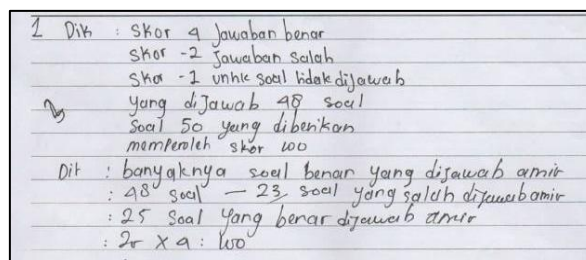 1 Dik : skor 4 jawaban benar
skor -2 jawaban salah
skor -1 untuk soal tidak dijawab
yang dijawab 48 soal
Soal 50 yang diberikan
memperoleh skor 100
Dit : banyaknya soal benar yang dijawab amir
: 48 soal - 23 soal yang salah dijawab amir
: 25 Soal yang benar dijawab amir
: 25 x 4 : 100